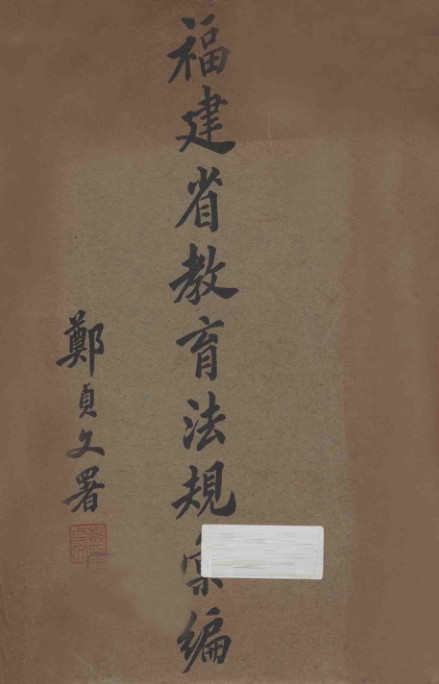 福建省教育法規彙編
鄭貞文署